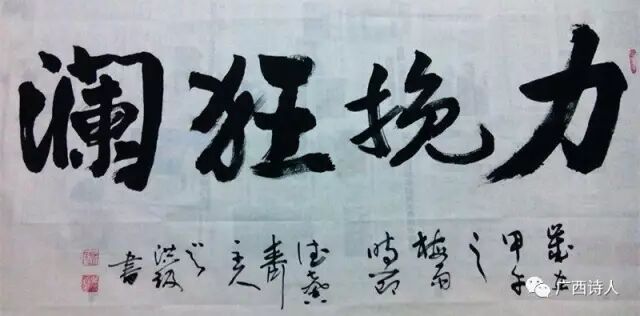 力挽狂澜
岁在
甲午
之
梅雨
时节
主人
洪
书
广西诗人